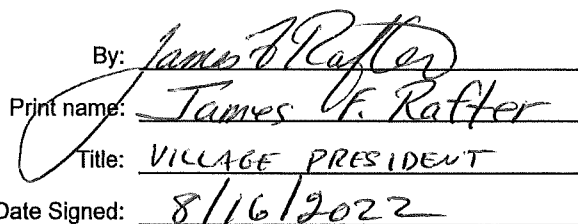 By: James F Rafter
Print name: James F. Rafter
Title: VILLAGE PRESIDENT
Date Signed: 8/16/2022